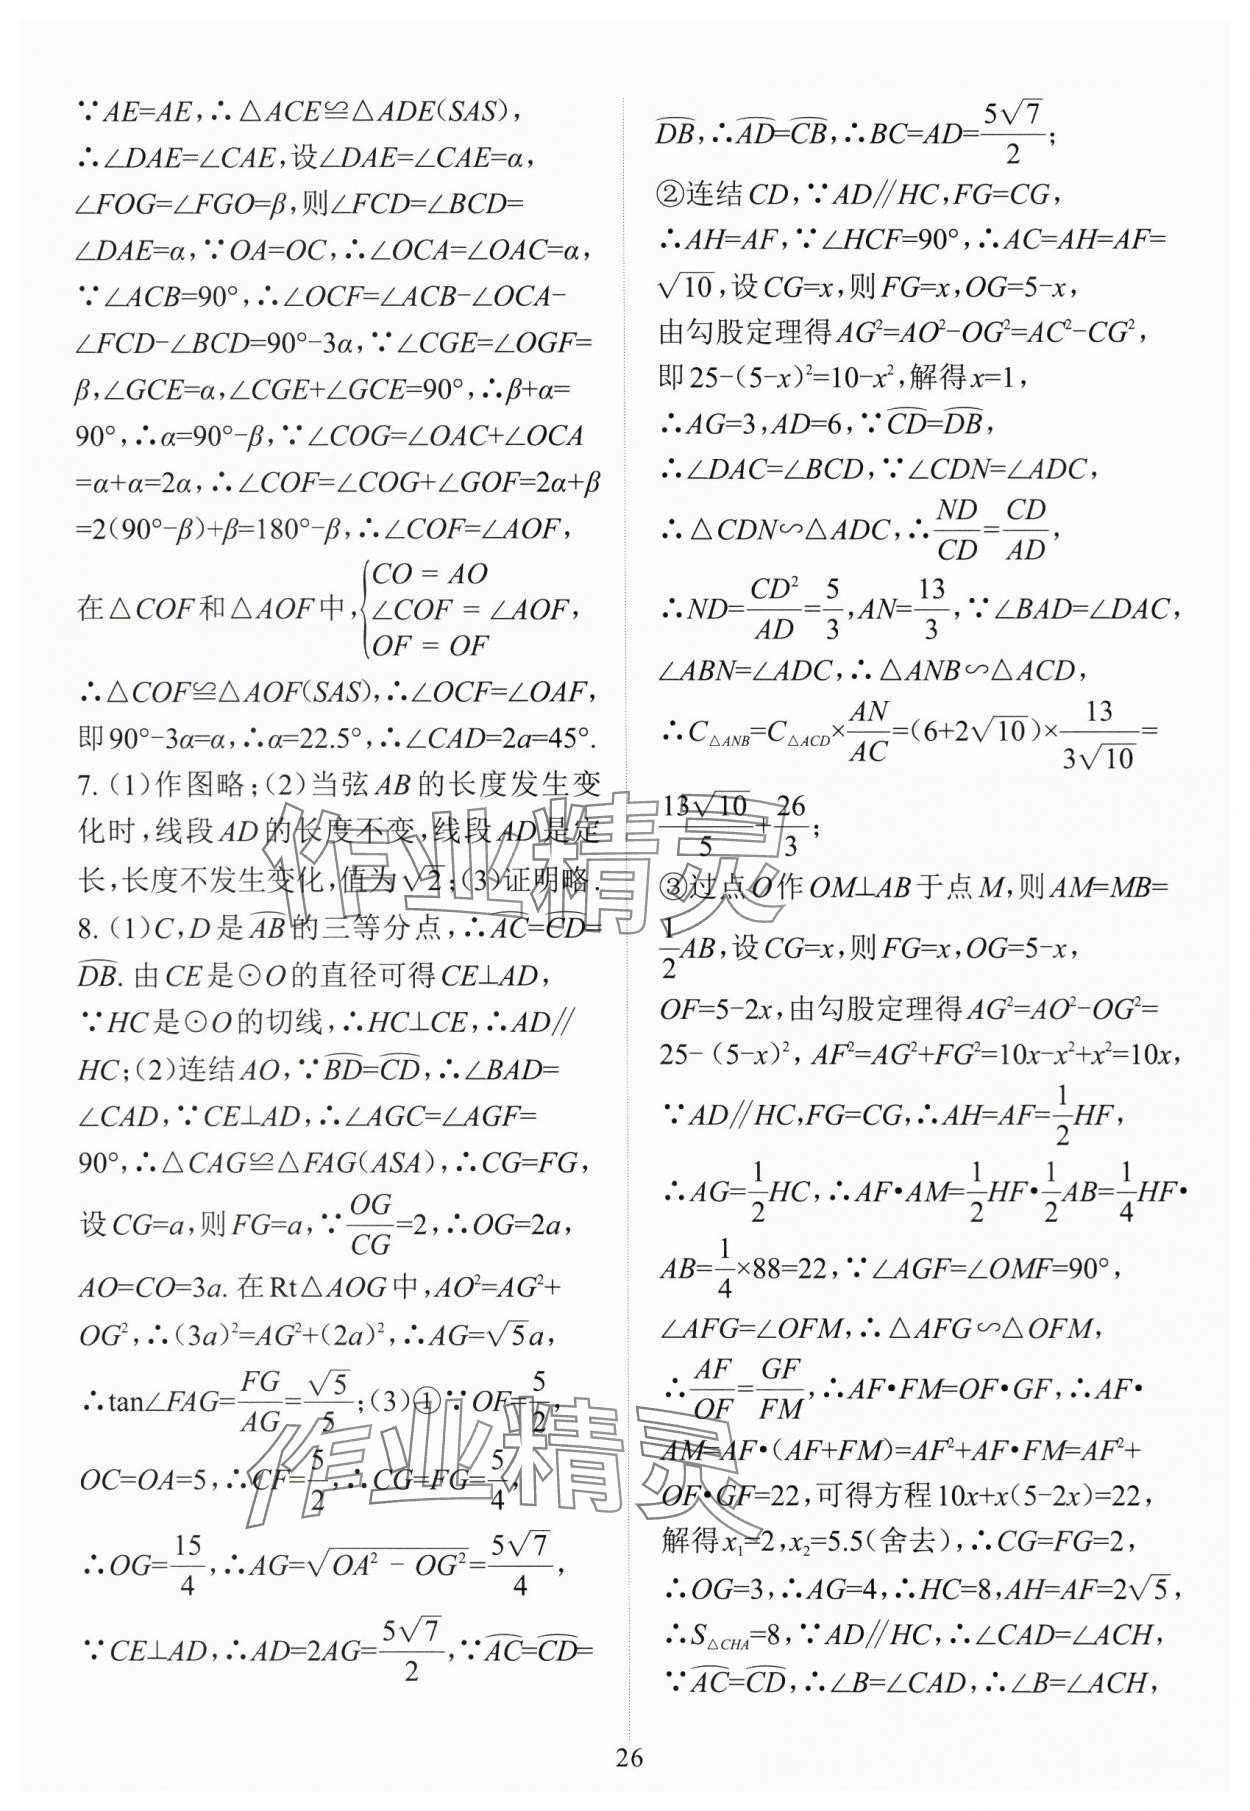 ∵AE=AE,∴△ACE≌△ADE(SAS),
∴∠DAE=∠CAE,设∠DAE=∠CAE=α,
∠FOG=∠FGO=β,则∠FCD=∠BCD=
∠DAE=α,∵OA=OC,∴∠OCA=∠OAC=α,
∵∠ACB=90°,∴∠OCF=∠ACB-∠OCA-
∠FCD-∠BCD=90°-3α,∵∠CGE=∠OGF=
β,∠GCE=α,∠CGE+∠GCE=90°,∴β+α=
90°,∴α=90°-β,∵∠COG=∠OAC+∠OCA
=α+α=2α,∴∠COF=∠COG+∠GOF=2α+β
=2(90°-β)+β=180°-β,∴∠COF=∠AOF,
在△COF和△AOF中,{CO = AO
∠COF = ∠AOF,
OF = OF
∴△COF≌△AOF(SAS),∴∠OCF=∠OAF,
即90°-3α=α,∴α=22.5°,∴∠CAD=2a=45°.
7.(1)作图略;(2)当弦AB的长度发生变
化时,线段AD的长度不变,线段AD是定
长,长度不发生变化,值为√2;(3)证明略.
8.(1)C,D是⌒AB的三等分点,∴⌒AC=⌒CD=
⌒DB.由CE是⊙O的直径可得CE⊥AD,
∵HC是⊙O的切线,∴HC⊥CE,∴AD∥
HC;(2)连结AO,∵⌒BD=⌒CD,∴∠BAD=
∠CAD,∵CE⊥AD,∴∠AGC=∠AGF=
90°,∴△CAG≌△FAG(ASA),∴CG=FG,
设CG=a,则FG=a,∵OG/CG=2,∴OG=2a,
AO=CO=3a.在Rt△AOG中,AO²=AG²+
OG²,∴(3a)²=AG²+(2a)²,∴AG=√5a,
∴tan∠FAG=FG/AG=√5/5;(3)①∵OF=5/2,
OC=OA=5,∴CF=5/2,∴CG=FG=5/4,
∴OG=15/4,∴AG=√(OA² - OG²)=5√7/4,
∵CE⊥AD,∴AD=2AG=5√7/2,∵⌒AC=⌒CD=
⌒DB,∴⌒AD=⌒CB,∴BC=AD=5√7/2;
②连结CD,∵AD∥HC,FG=CG,
∴AH=AF,∵∠HCF=90°,∴AC=AH=AF=
√10,设CG=x,则FG=x,OG=5-x,
由勾股定理得AG²=AO²-OG²=AC²-CG²,
即25-(5-x)²=10-x²,解得x=1,
∴AG=3,AD=6,∵⌒CD=⌒DB,
∴∠DAC=∠BCD,∵∠CDN=∠ADC,
∴△CDN∽△ADC,∴ND/CD=CD/AD,
∴ND=CD²/AD=5/3,AN=13/3,∵∠BAD=∠DAC,
∠ABN=∠ADC,∴△ANB∽△ACD,
∴C△ANB=C△ACD×AN/AC=(6+2√10)×13/3√10=
13√10/5+26/3;
③过点O作OM⊥AB于点M,则AM=MB=
1/2AB,设CG=x,则FG=x,OG=5-x,
OF=5-2x,由勾股定理得AG²=AO²-OG²=
25-(5-x)²,AF²=AG²+FG²=10x-x²+x²=10x,
∵AD∥HC,FG=CG,∴AH=AF=1/2HF,
∴AG=1/2HC,∴AF•AM=1/2HF•1/2AB=1/4HF•
AB=1/4×88=22,∵∠AGF=∠OMF=90°,
∠AFG=∠OFM,∴△AFG∽△OFM,
∴AF/OF=GF/FM,∴AF•FM=OF•GF,∴AF•
AM=AF•(AF+FM)=AF²+AF•FM=AF²+
OF•GF=22,可得方程10x+x(5-2x)=22,
解得x₁=2,x₂=5.5(舍去),∴CG=FG=2,
∴OG=3,∴AG=4,∴HC=8,AH=AF=2√5,
∴S△CHA=8,∵AD∥HC,∴∠CAD=∠ACH,
∵⌒AC=⌒CD,∴∠B=∠CAD,∴∠B=∠ACH,
26
作业精灵
作业精灵